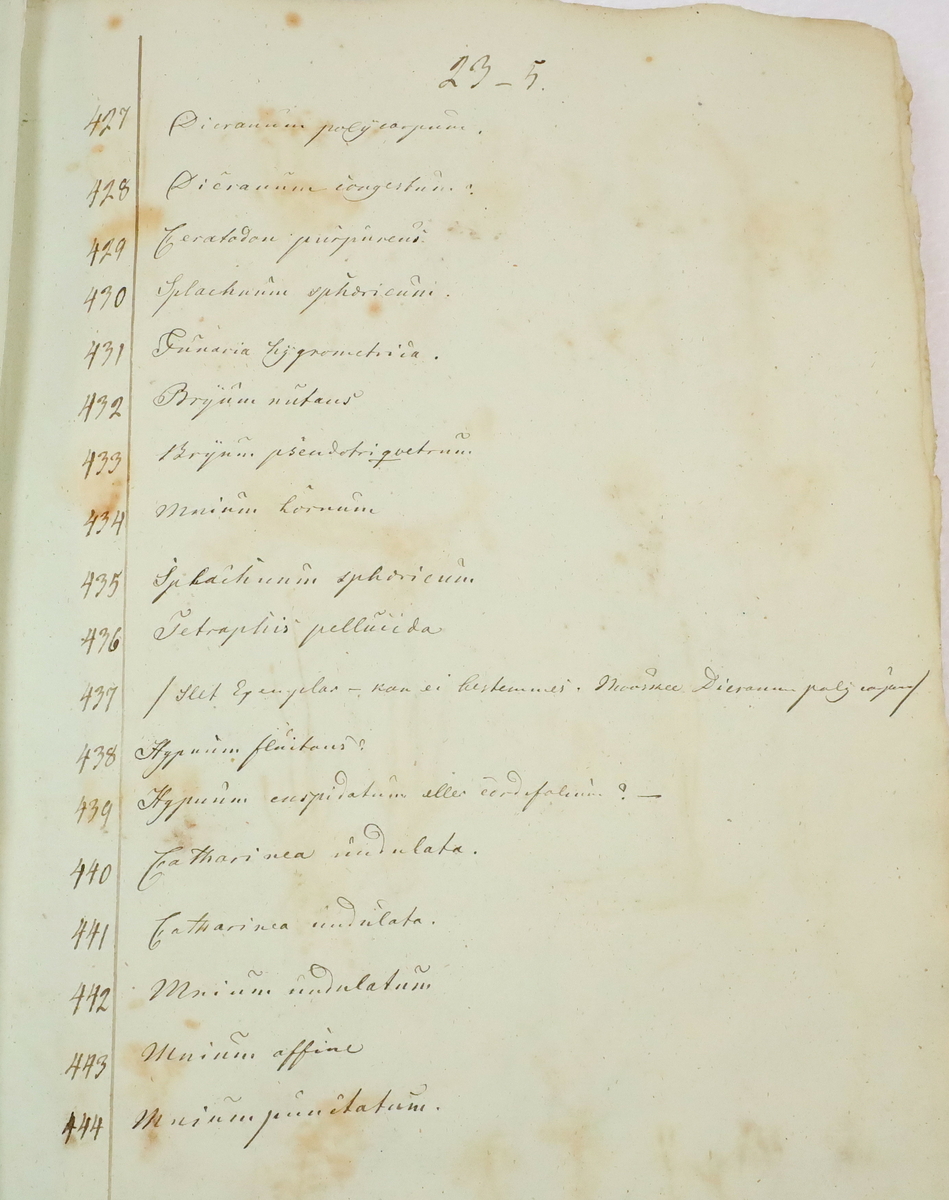 23-5.
427 Dicranum polycarpum.
428 Dicranum congestum?
429 Ceratodon purpureus.
430 Splachnum sphæricum.
431 Funaria hygrometrica.
432 Bryum nutans
433 Bryum pseudotriquetrum
434 Mnium hornum
435 Splachnum sphæricum
436 Tetraphis pellucida
437 / Slet Exemplar - kan ei bestemmes. Dicranum polycarpum/
438 Hypnum fluitans?
439 Hypnum cuspidatum eller cordifolium? -
440 Catharinea undulata.
441 Catharinea undulata.
442 Mnium undulatum
443 Mnium affine
444 Mnium punctatum.